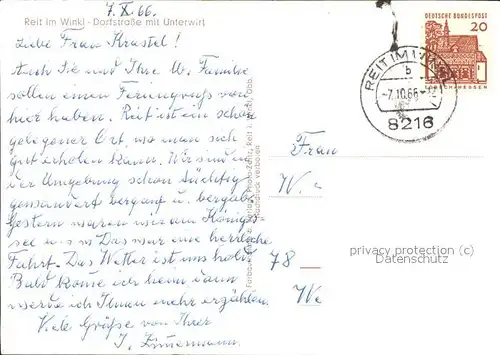 7. X. 66.
Reit im Winkl - Dorfstraße mit Unterwirt
Liebe Frau Krustel!
Auch Sie und Ihre lb. Familie
sollen einen Feriengruß von
hier haben. Reit ist ein schön
gelegener Ort, wo man sich
gut erholen kann. Wir sind in
der Umgebung schon tüchtig
gewandert bergauf u. bergab.
Gestern waren wir am Königs
see u s w Das war eine herrliche
Fahrt. Das Wetter ist uns hold.
Bald komme ich heim dann
werde ich Ihnen mehr erzählen.
Viele Grüße von Ihrer
J. Zimmermann.
Nachdruck verboten
DEUTSCHE BUNDESPOST
20
LORSCH/HESSEN
REIT IM WINKL
b
-7.10.66
8216
Frau
W.
78
We
privacy protection (c)
ansichtskarten-center.de